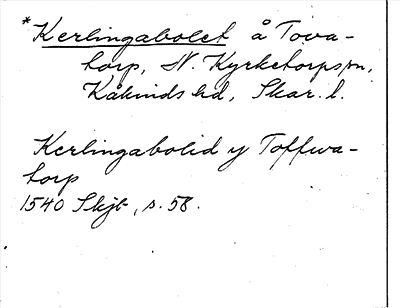 *Kerlingabolet å Tova-
torp, N. Kyrketorps sn,
Kåkinds hd, Skar. l.
Kerlingabolid y Toffwa-
torp
1540 Skjb, s. 58.